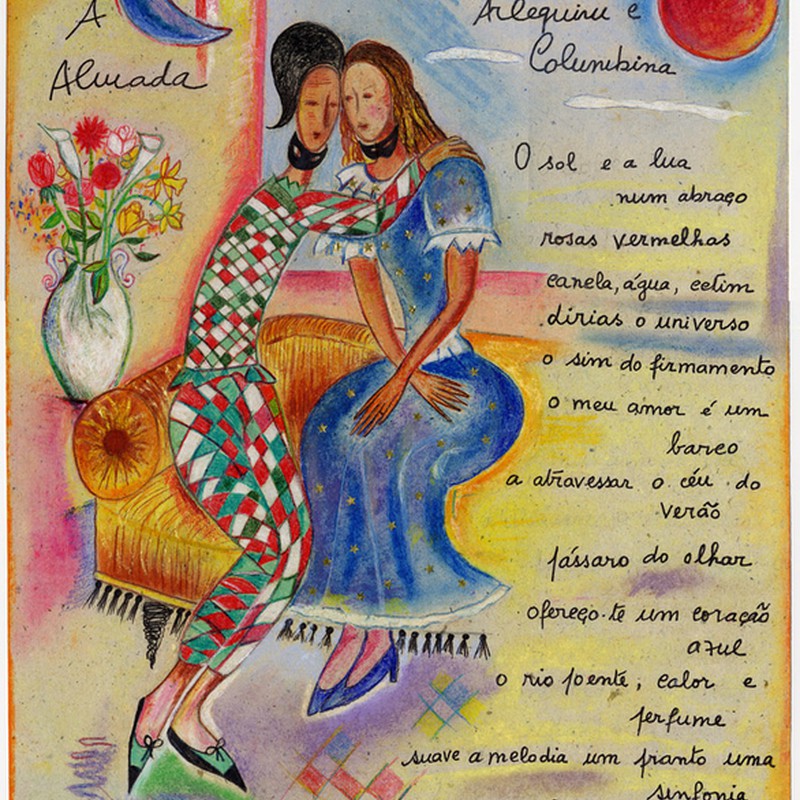 A
Almada
Arlequim e
Columbina
O sol e a lua
num abraço
rosas vermelhas
canela, água, cetim
dirias o universo
o sim do firmamento
o meu amor é um
barco
a atravessar o céu do
verão
pássaro do olhar
ofereço-te um coração
azul
o rio poente, calor e
perfume
suave a melodia um pranto uma
sinfonia